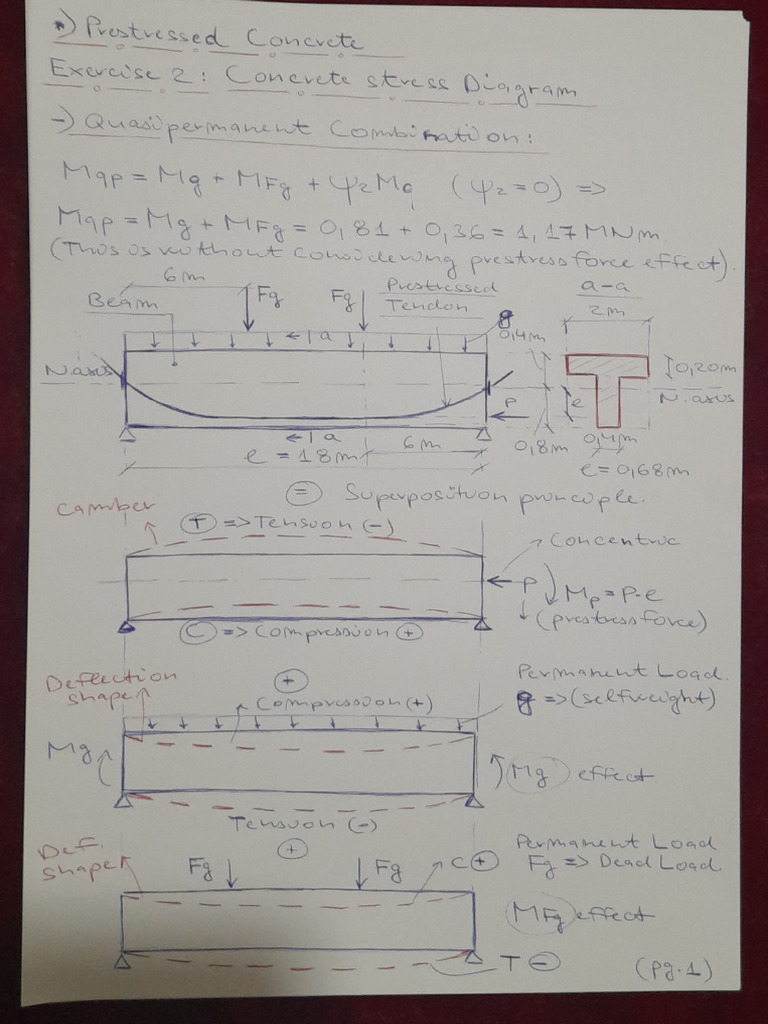 *) Prestressed Concrete
Exercise 2: Concrete stress Diagram
-) Quasipermanent Combination:
Mqp = Mg + MFg + ψ2Mq (ψ2=0) =>
Mqp = Mg + MFg = 0,81 + 0,36 = 1,17 MNm
(This is without considering prestress force effect).
6m
Fg
Fg
Prestressed
Tendon
a-a
2m
Beam
a
g
0,4m
0,20m
N.axis
N.axis
P
e
0,8m
0,4m
a
6m
l = 18m
e = 0,68m
= Superposition principle.
Camber
T => Tension (-)
Concentric
P
Mp = P·e
(prestress force)
C => Compression +
Deflection
shape
+
Compression (+)
Permanent Load.
g => (selfweight)
Mg
Mg effect.
Tension (-)
+
Def.
shape
Fg
Fg
C +
Permanent Load
Fg => Dead Load
MFg effect
T -
(pg.1)